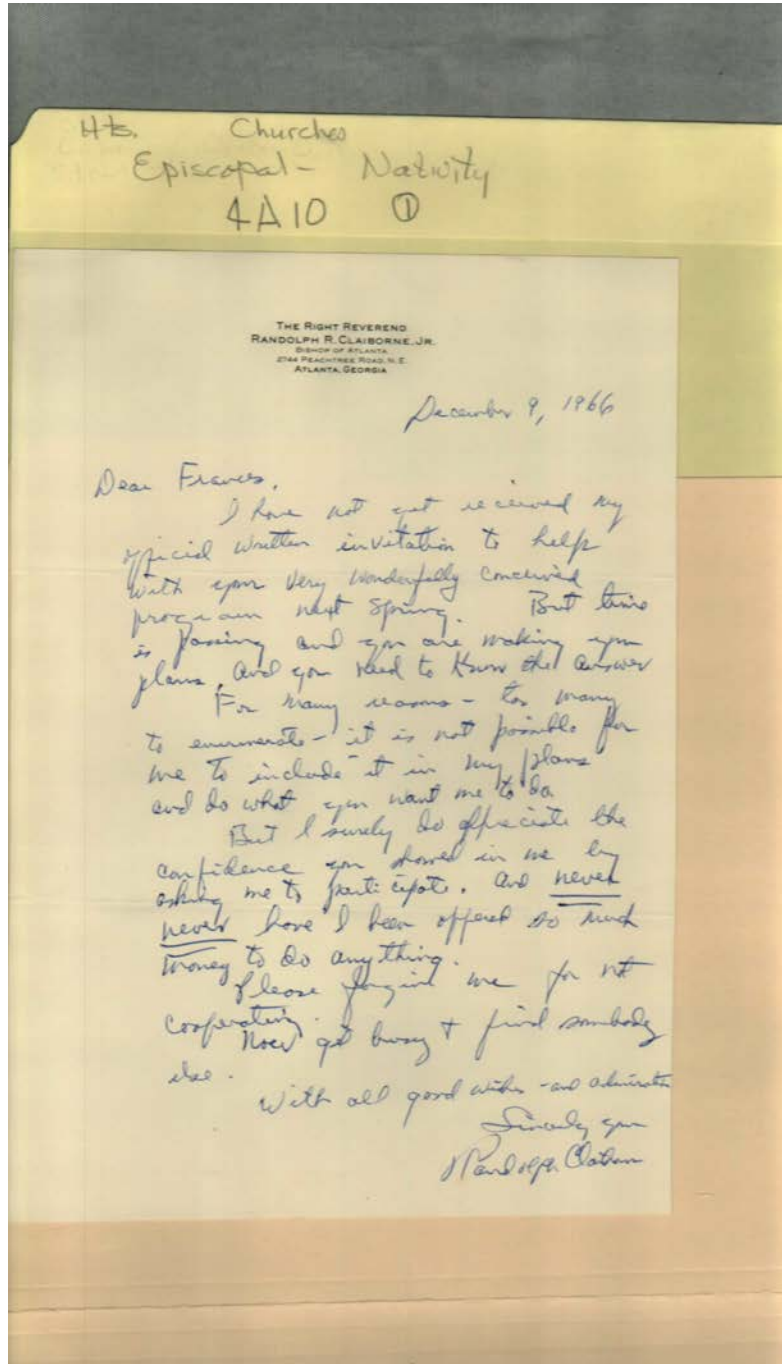 Hts. Churches
Episcopal - Nativity
4A10 ①
THE RIGHT REVEREND
RANDOLPH R. CLAIBORNE, JR.
BISHOP OF ATLANTA
2744 PEACHTREE ROAD, N.E.
ATLANTA, GEORGIA
December 9, 1966
Dear Frances,
I have not yet received my
official written invitation to help
with your very wonderfully conceived
program next Spring. But time
is passing and you are making your
plans, and you need to know the answer
For many reasons - too many
to enumerate - it is not possible for
me to include it in my plans
and do what you want me to do.
But I surely do appreciate the
confidence you showed in me by
asking me to participate. And never
never have I been offered so much
money to do anything.
Please forgive me for not
cooperating.
Now get busy + find somebody
else.
With all good wishes - and admiration
Sincerely your
Randolph Claiborne